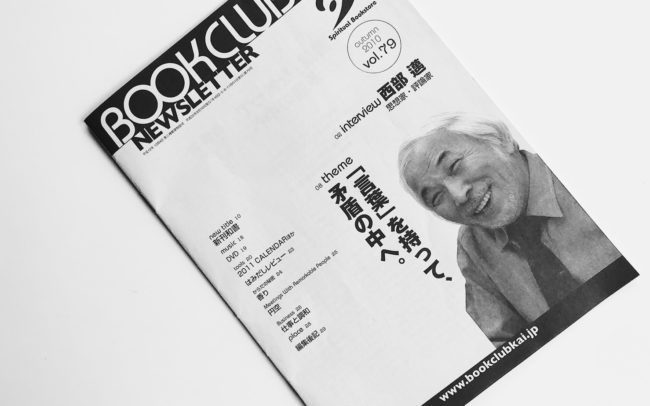 BOOK CLUB
NEWSLETTER
Spiritual Bookstore
autumn
2010
vol.79
02 interview 西部 邁
思想家・評論家
08 theme
「言葉」を持って、
矛盾の中へ。
new title 10
新刊和書
music 18
DVD 19
tools 20
2011 CALENDARほか
はみだしレビュー 23
香り
Meetings With Remarkable People 25
円空
Business 26
仕事と調和
place 28
編集後記 29
www.bookclubkai.jp